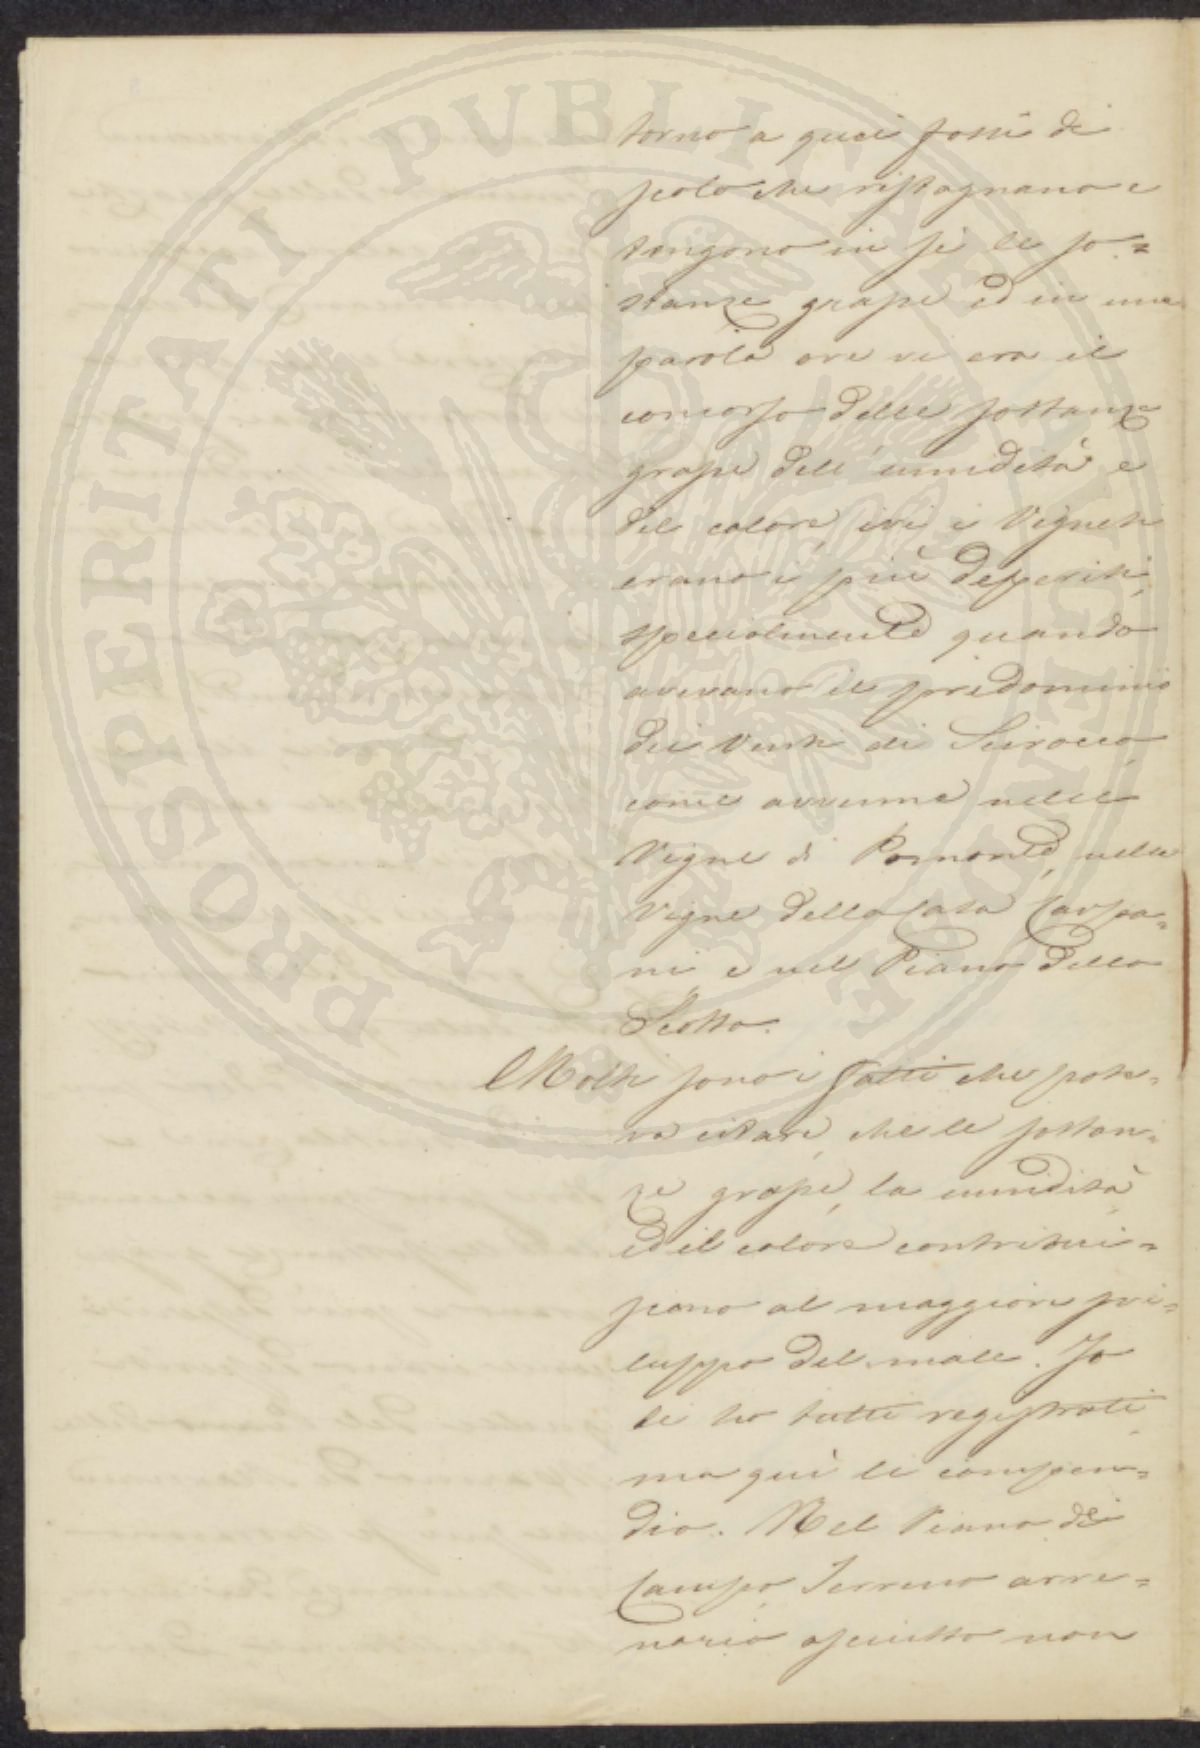 torno a quei fossi di
scolo che ristagnano e
tengono in se le so=
stanze grasse ed in una
parola ove vi era il
concorso delle sostanze
grasse dell'umidità e
del calore, ivi i Vigneti
erano i più deperiti,
specialmente quando
avevano il predominio
dei Venti di Scirocco,
come avvenne nelle
Vigne di Pomonte, nelle
Vigne della Casa Carpa=
ni, e nel Piano della
Scotta.
Molti sono i fatti che pote=
va citare, che le sostan=
ze grasse, la umidità,
ed il calore contribui=
scano al maggiore svi=
luppo del male. Io
li ho tutti registrati,
ma qui li compen=
dio. Nel Piano di
Campo, Terreno arre=
nario asciutto non
PROSPERITATI PVBLICAE AVGENDAE